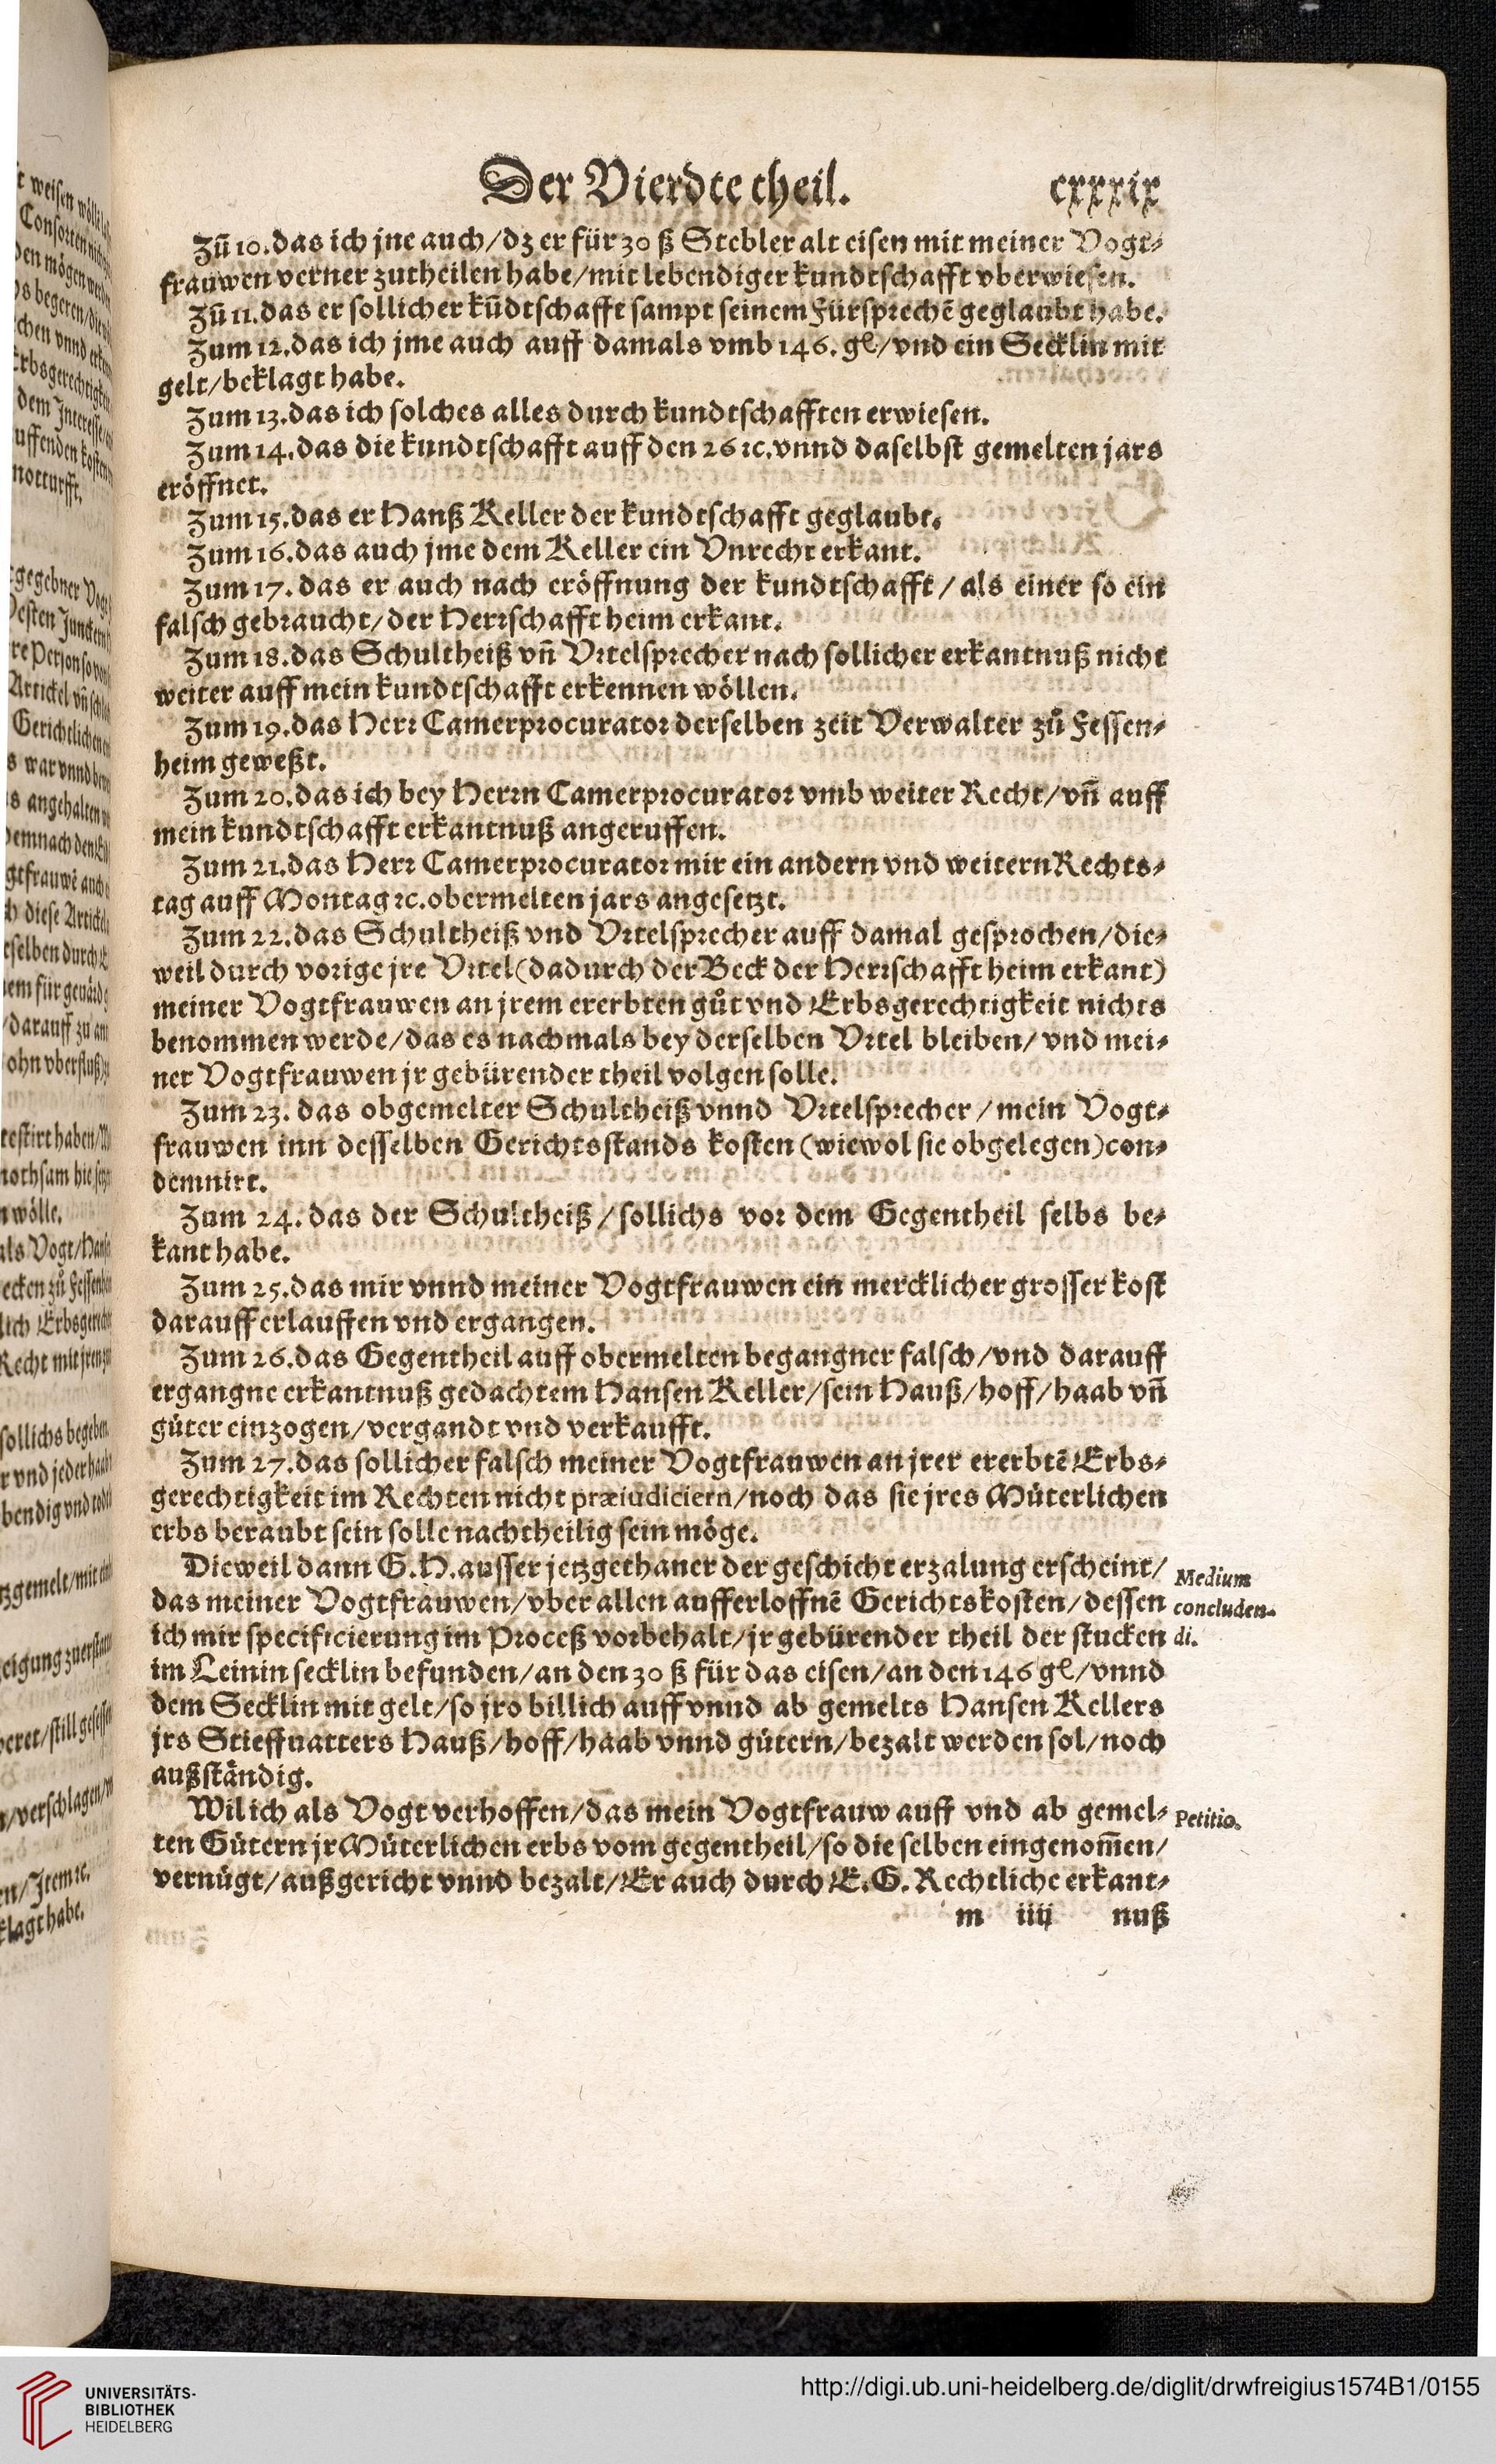 Der Vierdte theil. cxxxix
Zū 10. das ich jne auch/dz er für 30 ß Stebler alt eisen mit meiner Vogt-
frauwen verner zutheilen habe/mit lebendiger kundtschafft vberwiesen.
Zū 11. das er sollicher kūdtschafft sampt seinem Fürsprechē geglaubt habe.
Zum 12. das ich jme auch auff damals vmb 146. gl/vnd ein Secklin mit
gelt/beklagt habe.
Zum 13. das ich solches alles durch kundtschafften erwiesen.
Zum 14. das die kundtschafft auff den 26 ꝛc. vnnd daselbst gemelten jars
eröffnet.
Zum 15. das er Hanß Keller der kundtschafft geglaubt.
Zum 16. das auch jme dem Keller ein Vnrecht erkant.
Zum 17. das er auch nach eröffnung der kundtschafft / als einer so ein
falsch gebraucht/der Herrschafft heim erkant.
Zum 18. das Schultheiß vn̄ Vrtelsprecher nach sollicher erkantnuß nicht
weiter auff mein kundtschafft erkennen wöllen.
Zum 19. das Herr Camerprocurator derselben zeit Verwalter zů Fessen-
heim geweßt.
Zum 20. das ich bey Herrn Camerprocurator vmb weiter Recht/vn̄ auff
mein kundtschafft erkantnuß angeruffen.
Zum 21. das Herr Camerprocurator mir ein andern vnd weitern Rechts-
tag auff Montag ꝛc. obermelten jars angesetzt.
Zum 22. das Schultheiß vnd Vrtelsprecher auff damal gesprochen/die-
weil durch vorige jre Vrtel (dadurch der Beck der Herrschafft heim erkant)
meiner Vogtfrauwen an jrem ererbten gůt vnd Erbsgerechtigkeit nichts
benommen werde/das es nachmals bey derselben Vrtel bleiben/ vnd mei-
ner Vogtfrauwen jr gebürender theil volgen solle.
Zum 23. das obgemelter Schultheiß vnnd Vrtelsprecher / mein Vogt-
frauwen inn desselben Gerichtsstands kosten (wiewol sie obgelegen) con-
demnirt.
Zum 24. das der Schultheiß / sollichs vor dem Gegentheil selbs be-
kant habe.
Zum 25. das mir vnnd meiner Vogtfrauwen ein mercklicher grosser kost
darauff erlauffen vnd ergangen.
Zum 26. das Gegentheil auff obermelten begangner falsch/vnd darauff
ergangne erkantnuß gedachtem Hansen Keller/sein Hauß/hoff/haab vn̄
güter einzogen/vergandt vnd verkaufft.
Zum 27. das sollicher falsch meiner Vogtfrauwen an jrer ererbtē Erbs-
gerechtigkeit im Rechten nicht præiudiciern/noch das sie jres Müterlichen
erbs beraubt sein solle nachtheilig sein möge.
Dieweil dann G. H. ausser jetzgethaner der geschicht erzalung erscheint/
das meiner Vogtfrauwen/vber allen aufferloffnē Gerichtskosten/dessen
ich mir specificierung im Proceß vorbehalt/jr gebürender theil der stucken
im Leinin secklin befunden/an den 30 ß für das eisen/an den 146 gl/vnnd
dem Secklin mit gelt/so jro billich auff vnnd ab gemelts Hansen Kellers
jrs Stieffuatters Hauß/hoff/haab vnnd gütern/bezalt werden sol/noch
außständig.
Medium
concluden-
di.
Wil ich als Vogt verhoffen/das mein Vogtfrauw auff vnd ab gemel-
ten Gütern jr Müterlichen erbs vom gegentheil/so dieselben eingenom̄en/
vernügt/außgericht vnnd bezalt/Er auch durch E. G. Rechtliche erkant-
Petitio.
m iiij nuß
UNIVERSITÄTS-
BIBLIOTHEK
HEIDELBERG
http://digi.ub.uni-heidelberg.de/diglit/drwfreigius1574B1/0155